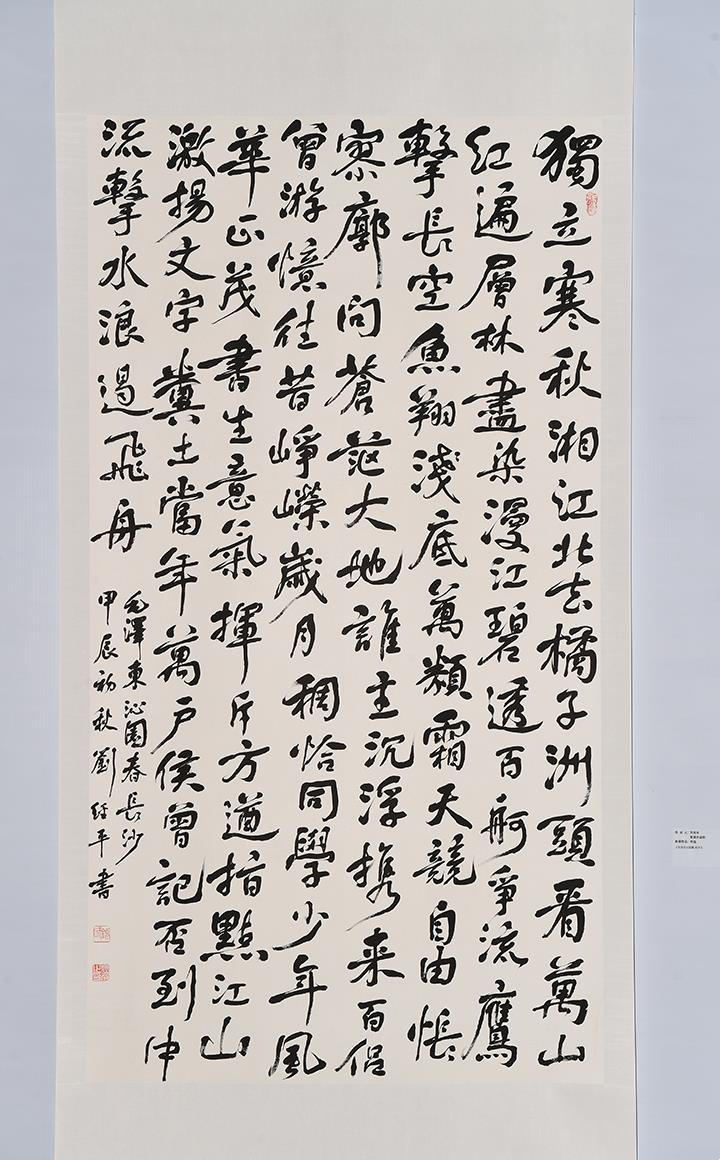 獨立寒秋湘江北去橘子洲頭看萬山
紅遍層林盡染漫江碧透百舸爭流鷹
擊長空魚翔淺底萬類霜天競自由悵
寥廓問蒼茫大地誰主沉浮携来百侣
曾游憶往昔崢嶸歲月稠恰同學少年風
華正茂書生意氣揮斥方遒指點江山
激揚文字糞土當年萬户侯曾記否到中
流擊水浪遏飛舟
毛澤東沁園春長沙
甲辰初秋劉經平書